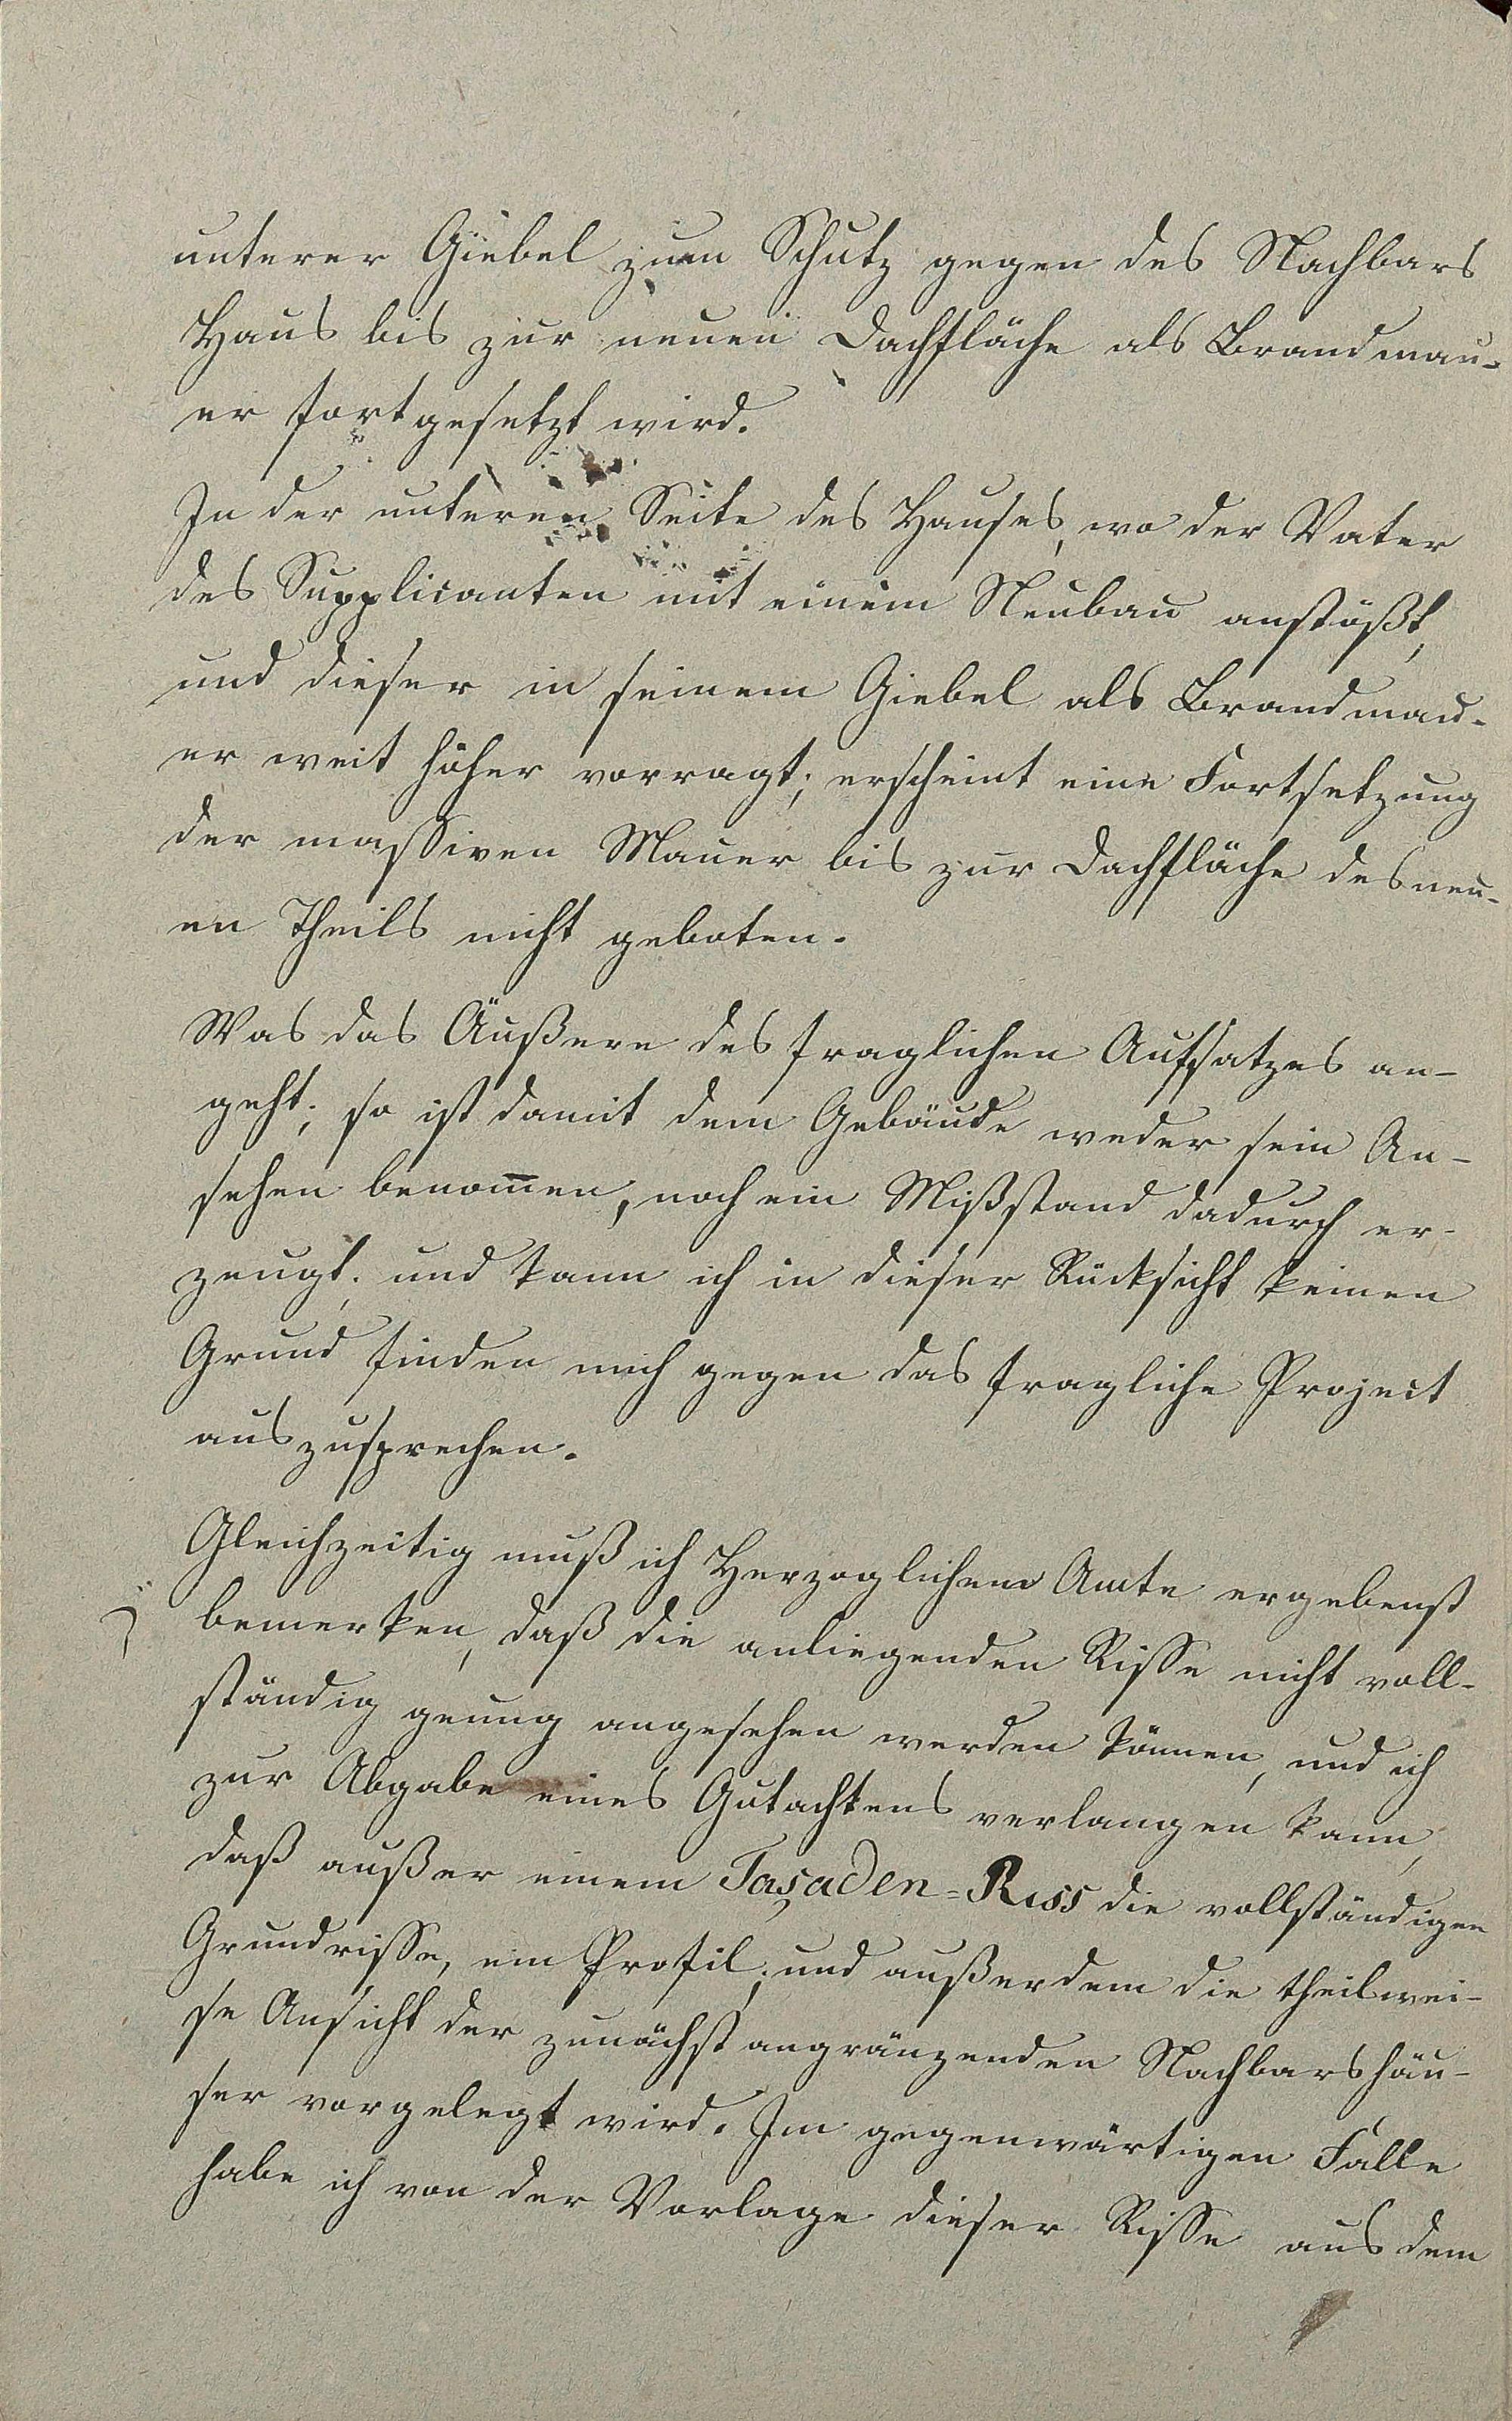 unterer Giebel zum Schutz gegen des Nachbars
Haus bis zur neuen Dachfläche als Brandmau-
er fortgesetzt wird.
In der unteren Seite des Hauses, wo der Vater
des Supplicanten mit einem Neubau anstößt,
und dieser in seinem Giebel als Brandmau-
er weit höher vorragt; erscheint eine Fortsetzung
der massiven Mauer bis zur Dachfläche des neu-
en Theils nicht geboten.
Was das Äußere des fraglichen Aufsatzes an-
geht; so ist damit dem Gebäude weder sein An-
sehen benom̅en, noch ein Mißstand dadurch er-
zeugt; und kann ich in dieser Rücksicht keinen
Grund finden mich gegen das fragliche Project
auszusprechen.
Gleichzeitig muß ich Herzoglichem Amte ergebenst
bemerken, daß die anliegenden Risse nicht voll-
ständig genug angesehen werden können, und ich
zur Abgabe eines Gutachtens verlangen kann,
daß außer einem Façaden-Riss die vollständigen
Grundrisse, ein Profil; und außerdem die theilwei-
se Ansicht der zunächst angränzenden Nachbarshäu-
ser vorgelegt wird. Im gegenwärtigen Falle
habe ich von der Vorlage dieser Risse aus dem